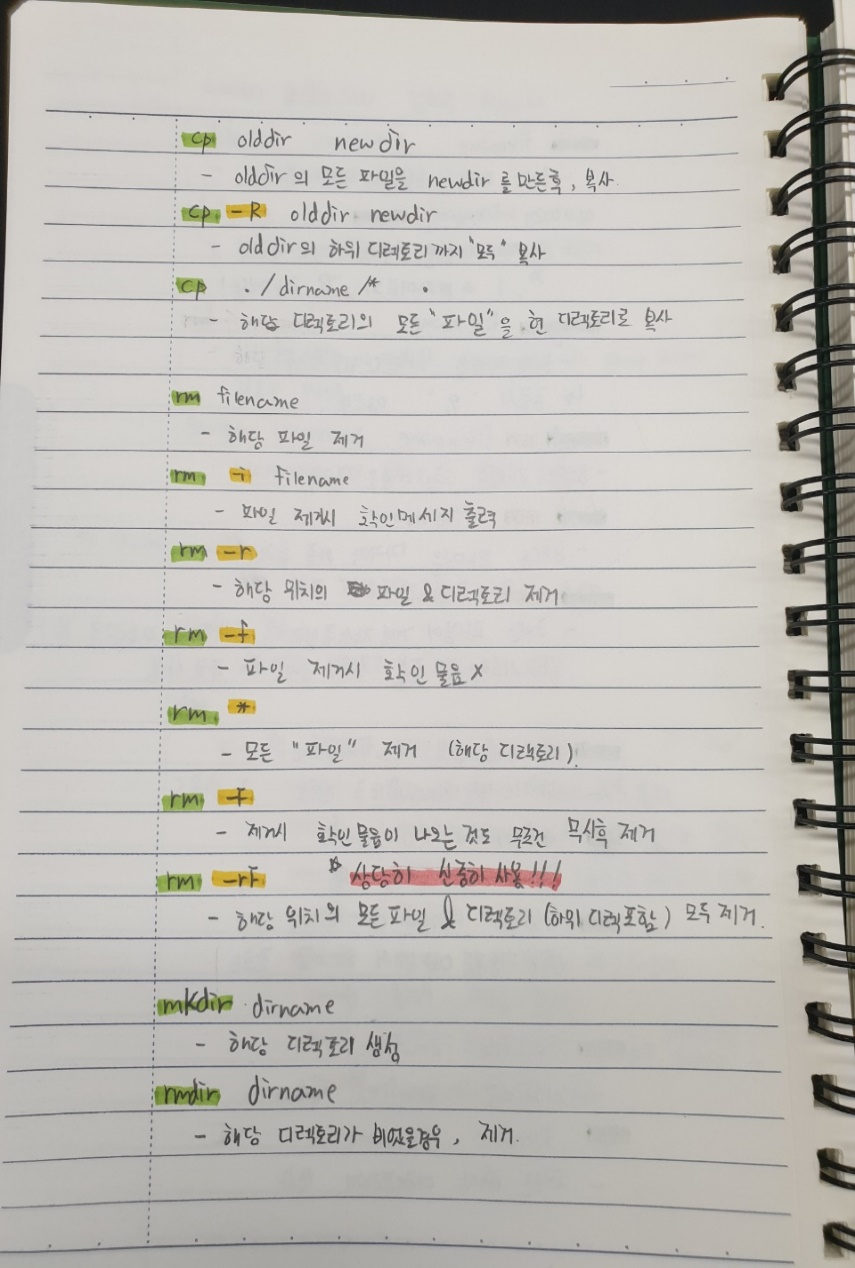 cp olddir newdir
- olddir의 모든 파일을 newdir를 만든후, 복사.
cp -R olddir newdir
- olddir의 하위 디렉토리까지 "모두" 복사
cp ./dirname/* .
- 해당 디렉토리의 모든 "파일"을 현 디렉토리로 복사
rm filename
- 해당 파일 제거
rm -i filename
- 파일 제거시 확인메세지 출력
rm -r
- 해당 위치의 파일 & 디렉토리 제거
rm -f
- 파일 제거시 확인 물음 X
rm *
- 모든 "파일" 제거 (해당 디렉토리).
rm -f
- 제거시 확인물음이 나오는것도 무조건 무시후 제거
rm -rf ☆ 상당히 신중히 사용!!!
- 해당 위치의 모든파일 & 디렉토리 (하위 디렉포함) 모두 제거.
mkdir dirname
- 해당 디렉토리 생성
rmdir dirname
- 해당 디렉토리가 비었을경우, 제거.